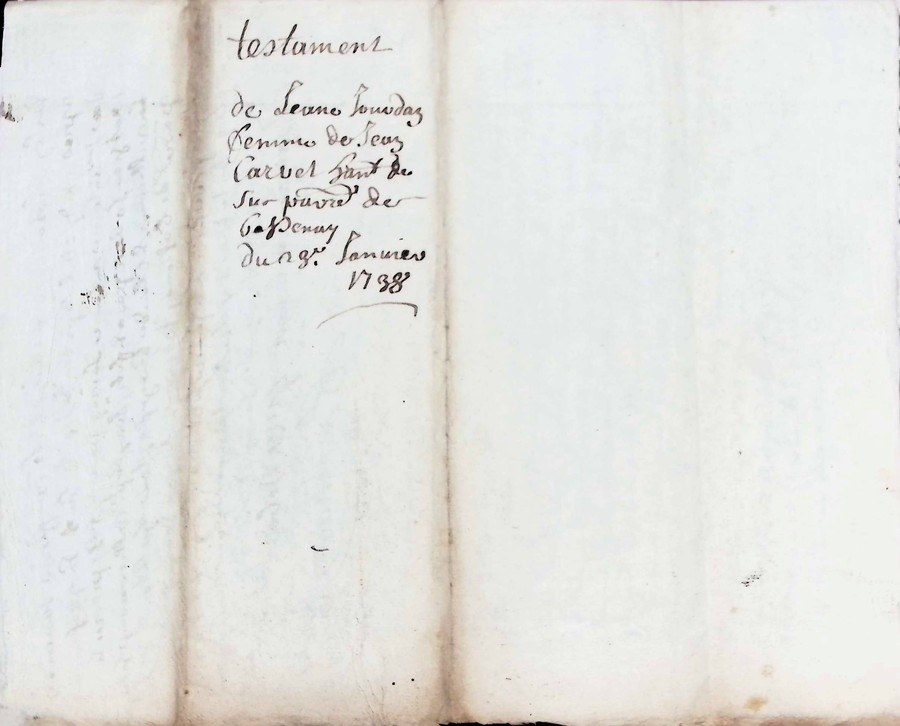 testament
de Jeane Jourdan
femme de Jean
Carvel hant de
sur paroisse de
du 23e. Janvier
1738